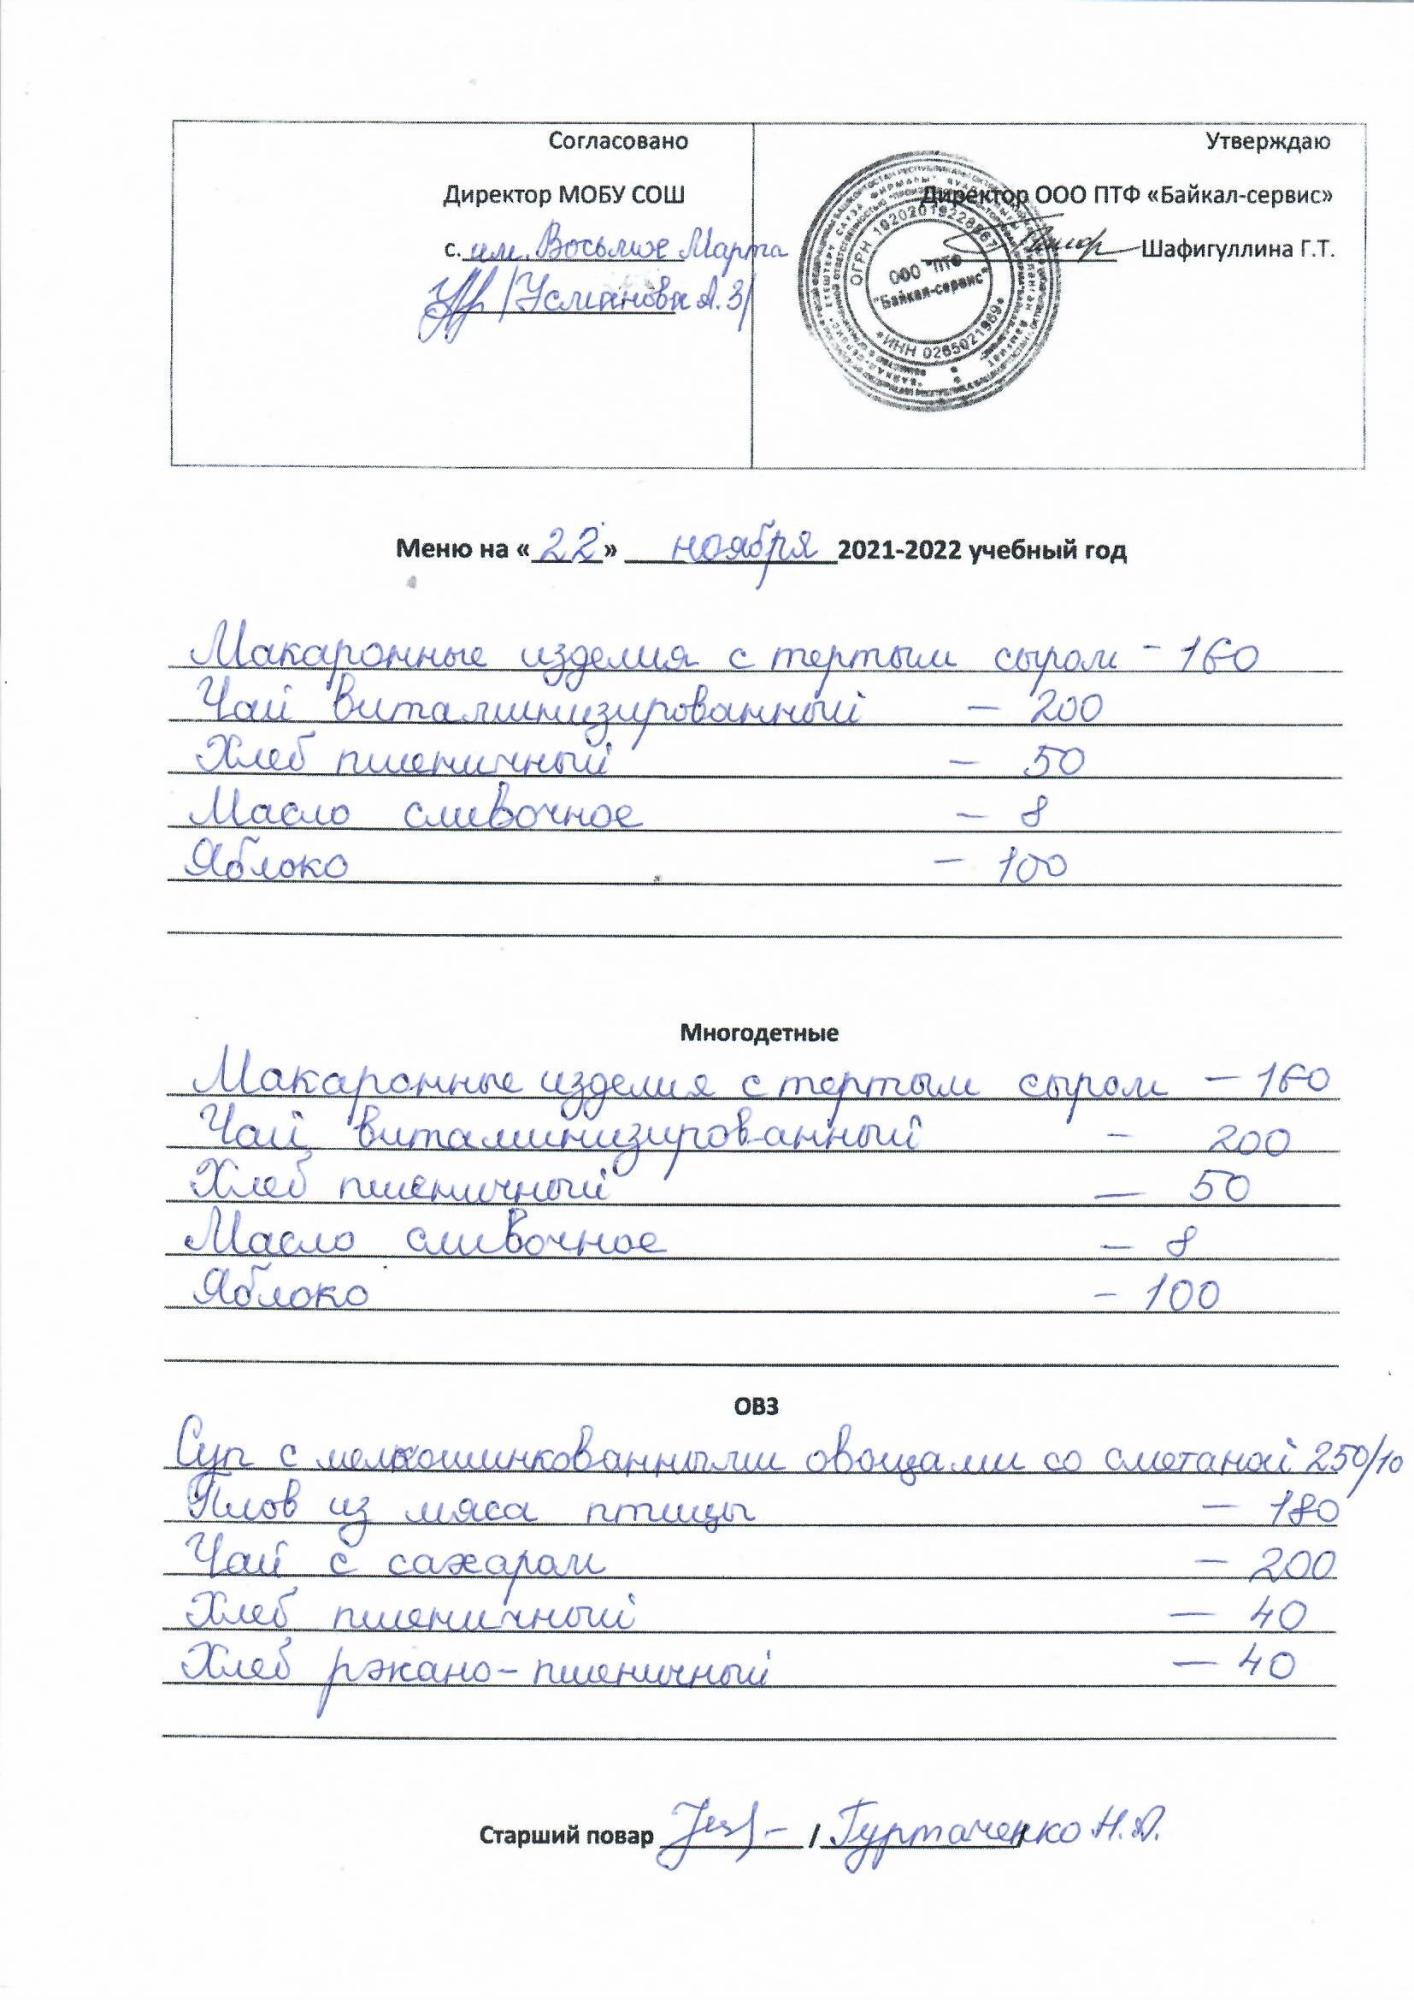 Согласовано
Директор МОБУ СОШ
с. им. Восьмое Марта
/Усманова А.З/
Утверждаю
Директор ООО ПТФ «Байкал-сервис»
Шафигуллина Г.Т.
ОГРН
ООО "ПТФ
"Байкал-сервис"
ИНН 0265021989
Меню на «22» ноября 2021-2022 учебный год
Макаронные изделия с тертым сыром - 160
Чай витаминизированный - 200
Хлеб пшеничный - 50
Масло сливочное - 8
Яблоко - 100
Многодетные
Макаронные изделия с тертым сыром - 160
Чай витаминизированный - 200
Хлеб пшеничный - 50
Масло сливочное - 8
Яблоко - 100
ОВЗ
Суп с мелкошинкованными овощами со сметаной 250/10
Плов из мяса птицы - 180
Чай с сахаром - 200
Хлеб пшеничный - 40
Хлеб ржано-пшеничный - 40
Старший повар / Гуртаченко Н.А.